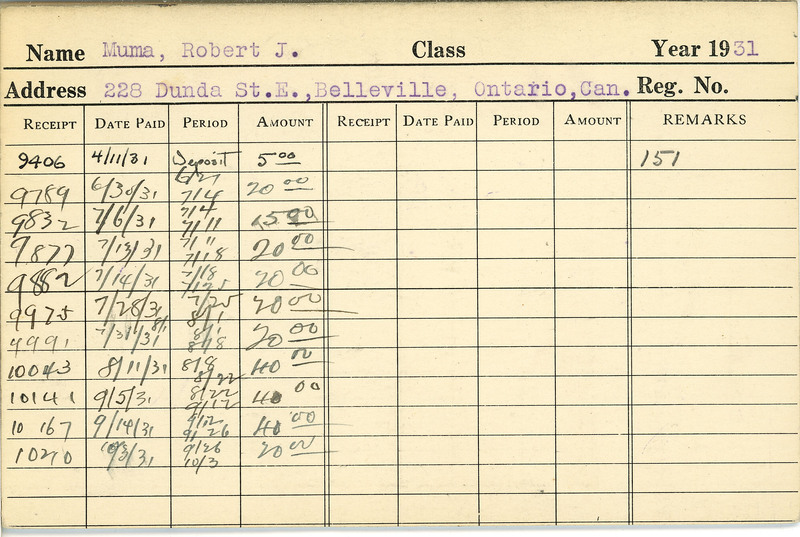 Name Muma, Robert J. Class Year 1931
Address 228 Dunda St.E.,Belleville, Ontario,Can. Reg. No.
RECEIPT DATE PAID PERIOD AMOUNT RECEIPT DATE PAID PERIOD AMOUNT REMARKS
9406 4/11/31 Deposit 5.00 151
9789 6/30/31 6/27 7/4 20.00
9832 7/6/31 7/4 7/11 15.00
9877 7/13/31 7/11 7/18 20.00
9882 7/14/31 7/18 7/25 20.00
9975 7/28/31 7/25 8/1 20.00
9991 7/31/31 8/1 8/1 8/8 20.00
10043 8/11/31 8/8 8/22 40.00
10141 9/5/31 8/22 9/12 40.00
10167 9/14/31 9/12 9/26 40.00
10210 10/3/31 9/26 10/3 20.00